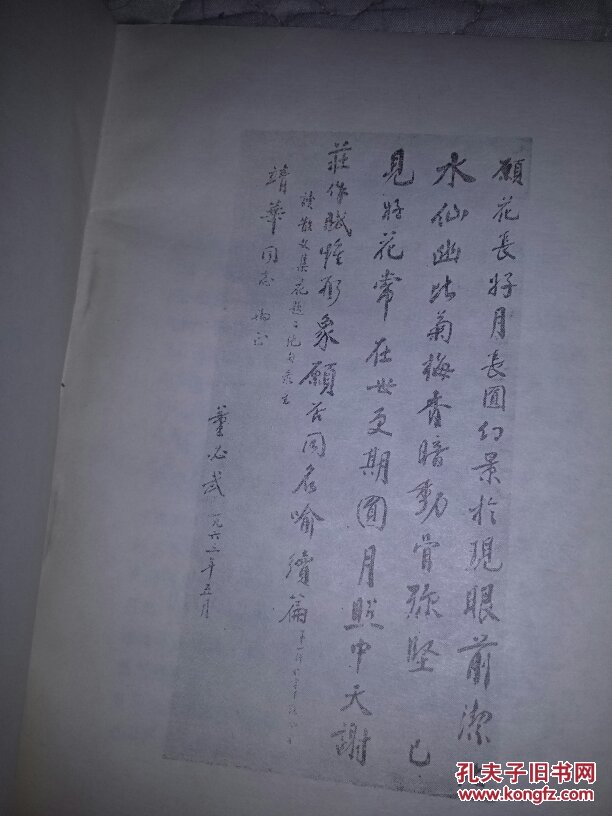 願花長好月長圓幻景於現眼前潔
水仙幽比菊梅香暗動骨弥堅 已
見好花常在世更期圓月照中天謝
莊作賦惟形象願者同名喻續篇
讀散文集花題二絶句
靖華同志
董必武 一九六二年五月
孔夫子旧书网
www.kongfz.com